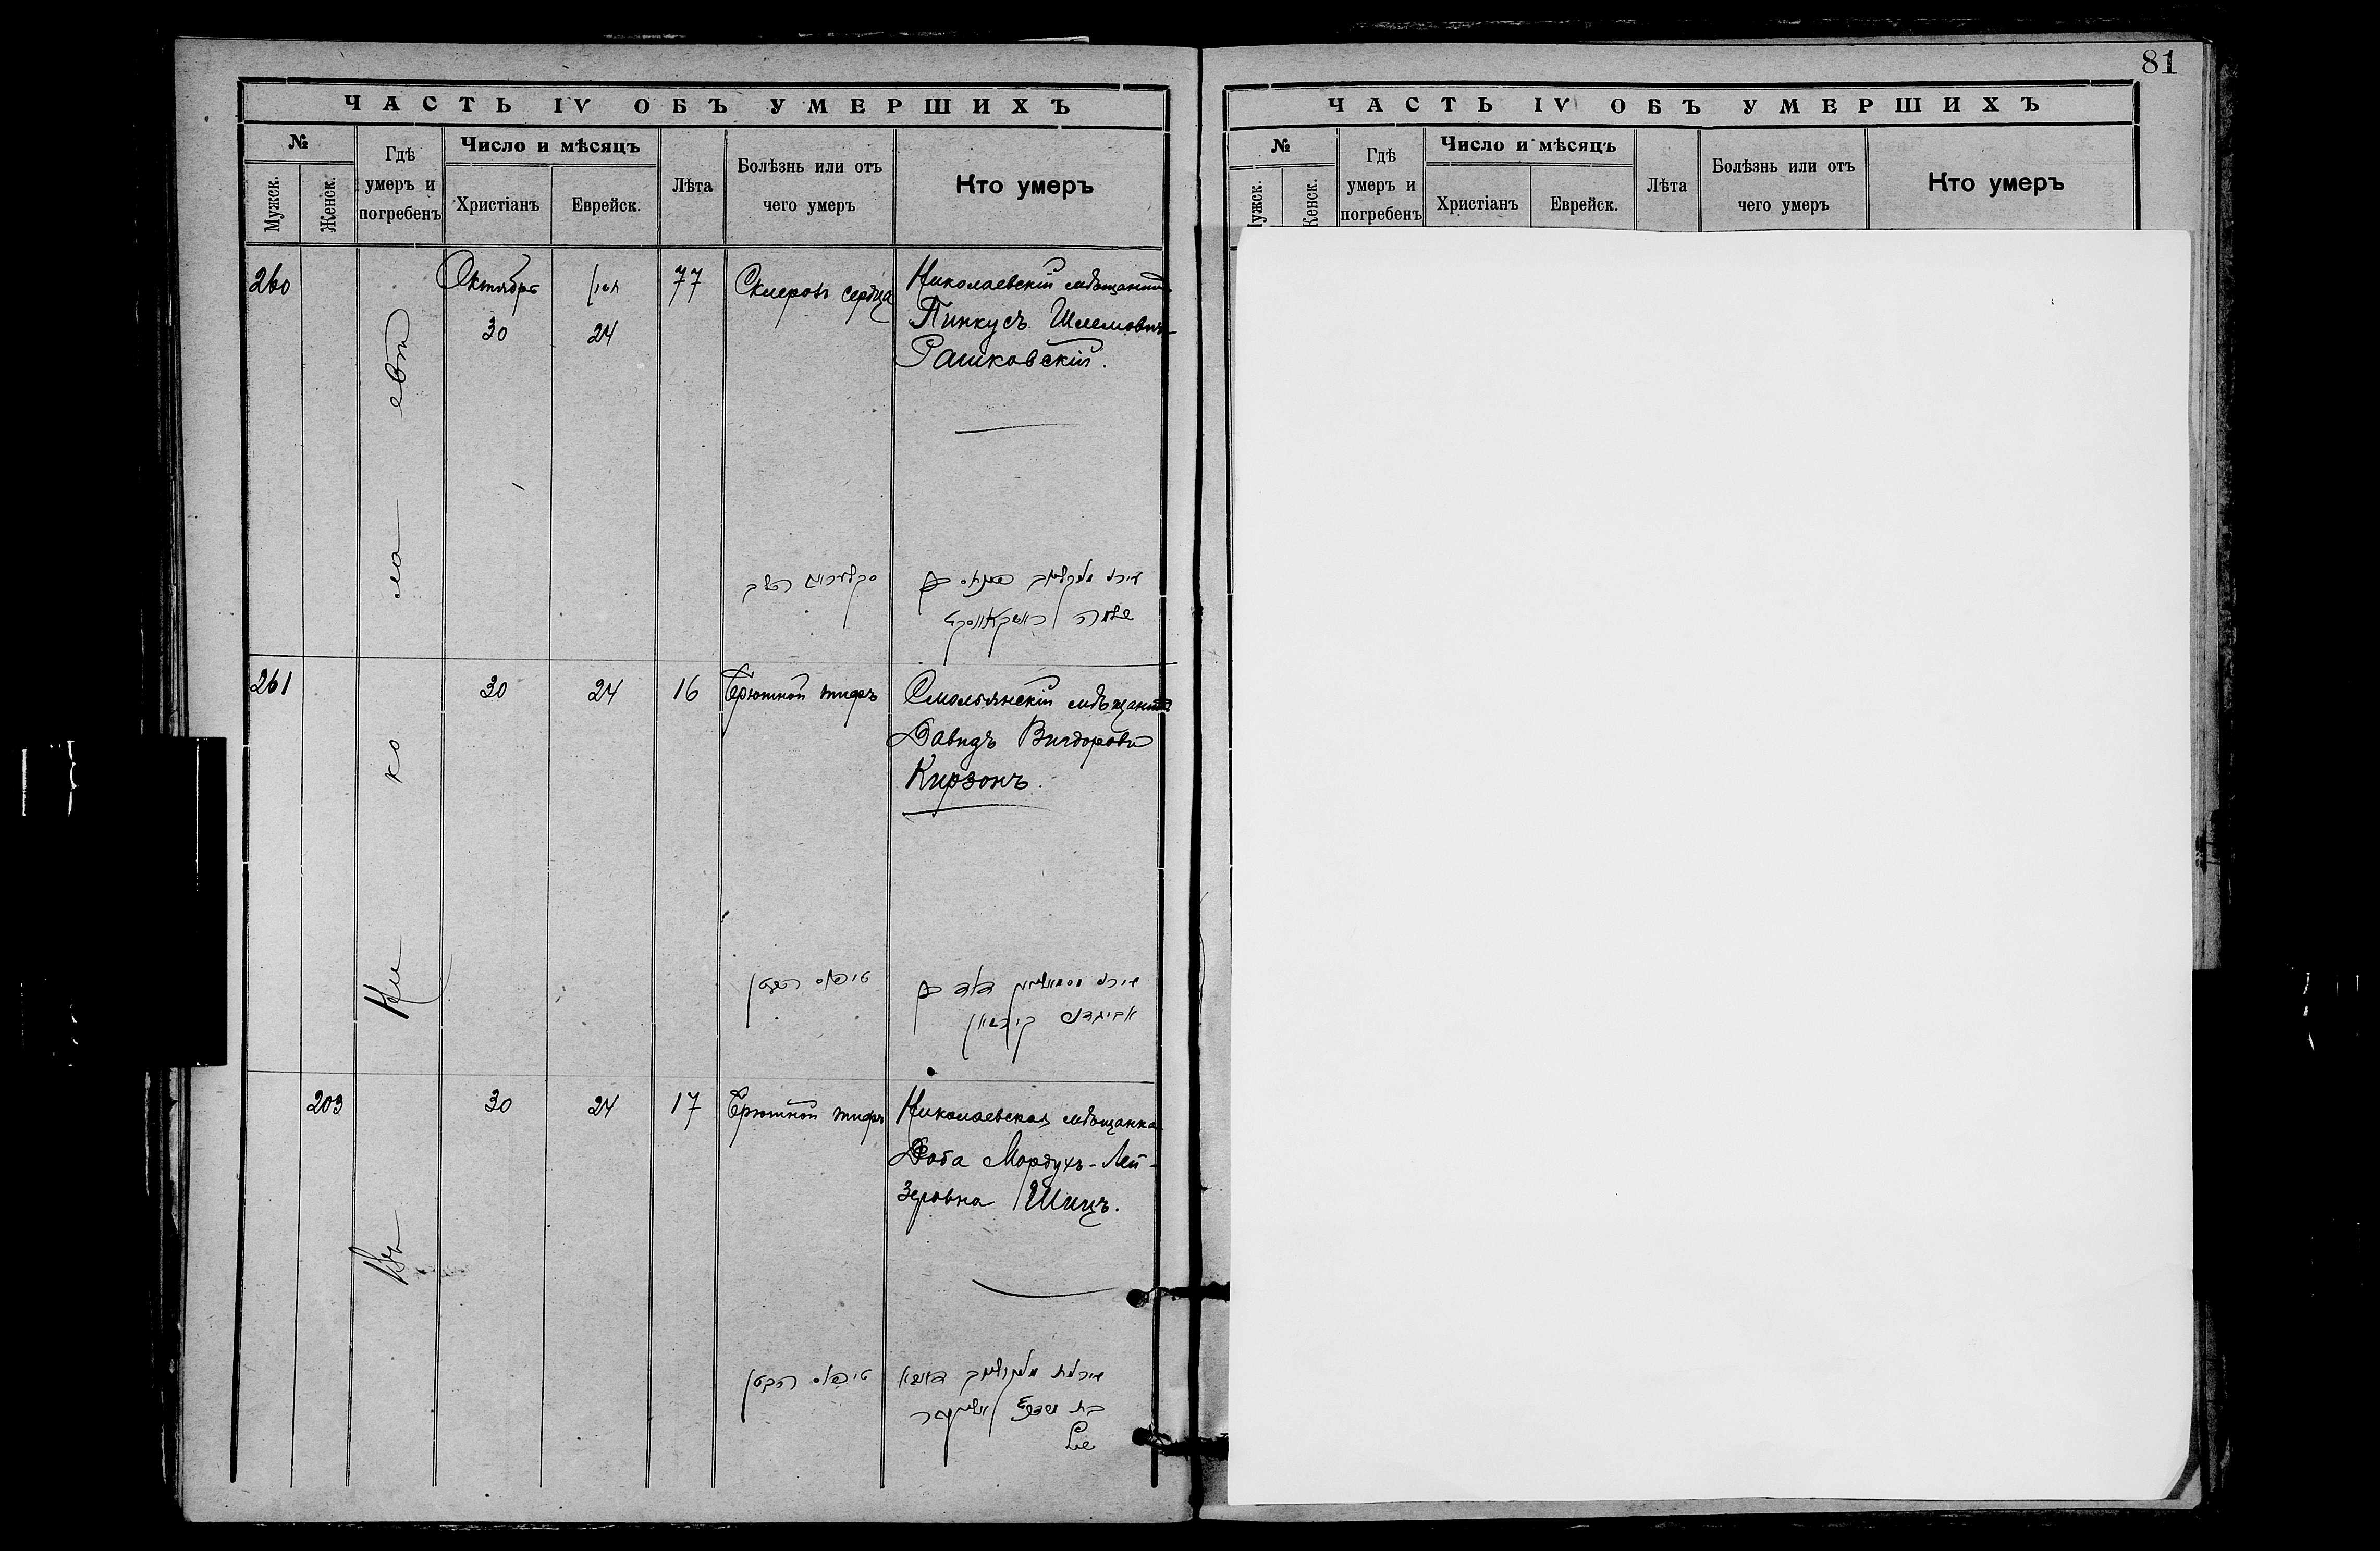 81
ЧАСТЬ IV ОБЪ УМЕРШИХЪ
№
Мужск.
Женск.
Гдѣ
умеръ и
погребенъ
Число и мѣсяцъ
Христіанъ
Еврейск.
Лѣта
Болѣзнь или отъ
чего умеръ
Кто умеръ
Въ Николаевѣ
260
Октябрь
30
24
77
Склерозъ сердца
Николаевскій мѣщанинъ
Пинкусъ Шлемовичъ
Рашковскій.
שלמה ראשקאווסקי
261
30
24
16
Брюшной тифъ
Смольянскій мѣщанинъ
Давидъ
Кирзонъ.
טיפוס הבטן
אביגדור קירזאן
203
30
24
17
Брюшной тифъ
Николаевская мѣщанка
Мордухъ-Лей-
зеровна Шицъ.
טיפוס הבטן
ЧАСТЬ IV ОБЪ УМЕРШИХЪ
№
ужск.
Женск.
Гдѣ
умеръ и
погребенъ
Число и мѣсяцъ
Христіанъ
Еврейск.
Лѣта
Болѣзнь или отъ
чего умеръ
Кто умеръ